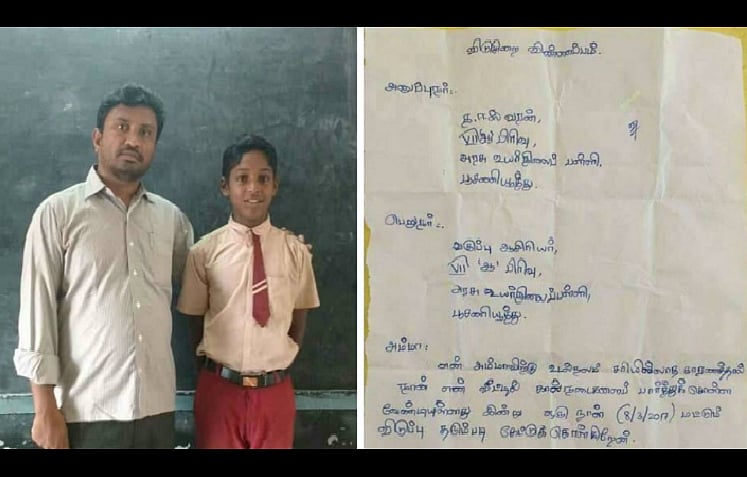 விடுமுறை விண்ணப்பம்.
அனுப்புநர்:-
த.ஈஸ்வரன்,
VII 'ஆ' பிரிவு,
அரசு உயர்நிலைப் பள்ளி,
பூசணியூத்து.
பெறுநர்:-
வகுப்பு ஆசிரியர்,
VII 'ஆ' பிரிவு,
அரசு உயர்நிலைப்பள்ளி,
பூசணியூத்து.
அம்மா:
என் அம்மாவிற்கு உடல்நலம் சரியில்லாத காரணத்தால்
நான் என் வீட்டில் கால்நடைகளைப் பார்த்துக் கொள்ள
வேண்டியுள்ளது இன்று ஒரு நாள் (8/3/2017) மட்டும்
விடுப்பு தரும்படி கேட்டுக்கொள்கிறேன்.